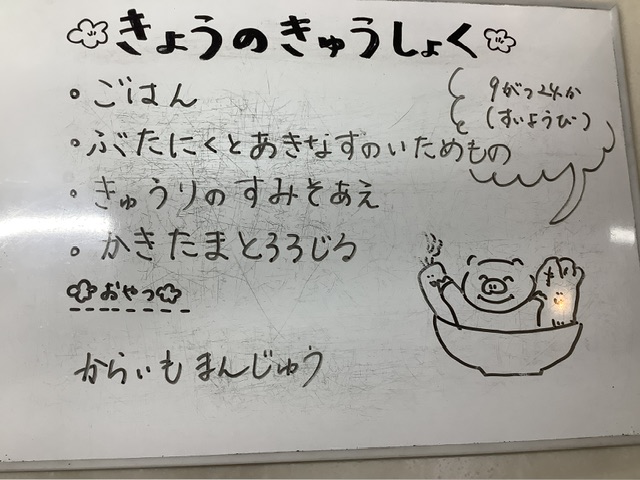 きょうのきゅうしょく
9がつ24か
(すいようび)
・ごはん
・ぶたにくとあきなすのいためもの
・きゅうりのすみそあえ
・かきたまとろろじる
おやつ
からいもまんじゅう